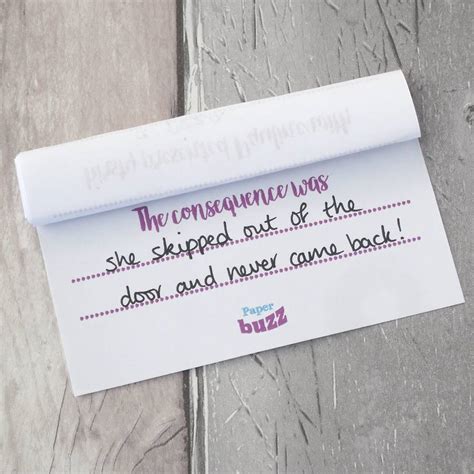 The consequence was
she skipped out of the
door and never came back!
Paper
buzz